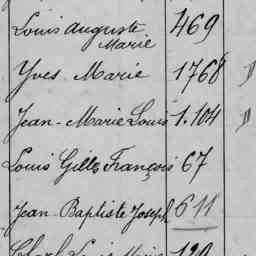 Louis Auguste 469
Marie
Yves Marie 1768 "
Jean-Marie Louis 1.104 "
Louis Gilles François 67
Jean Baptiste Joseph 611
Louis Marie 120